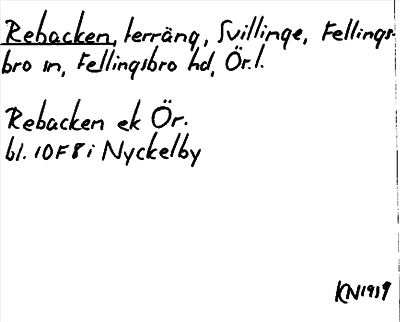 Rebacken, terräng, Svillinge, Fellings-
bro sn, Fellingsbro hd, Ör.l.
Rebacken ek Ör.
bl. 10F8i Nyckelby
KN1939